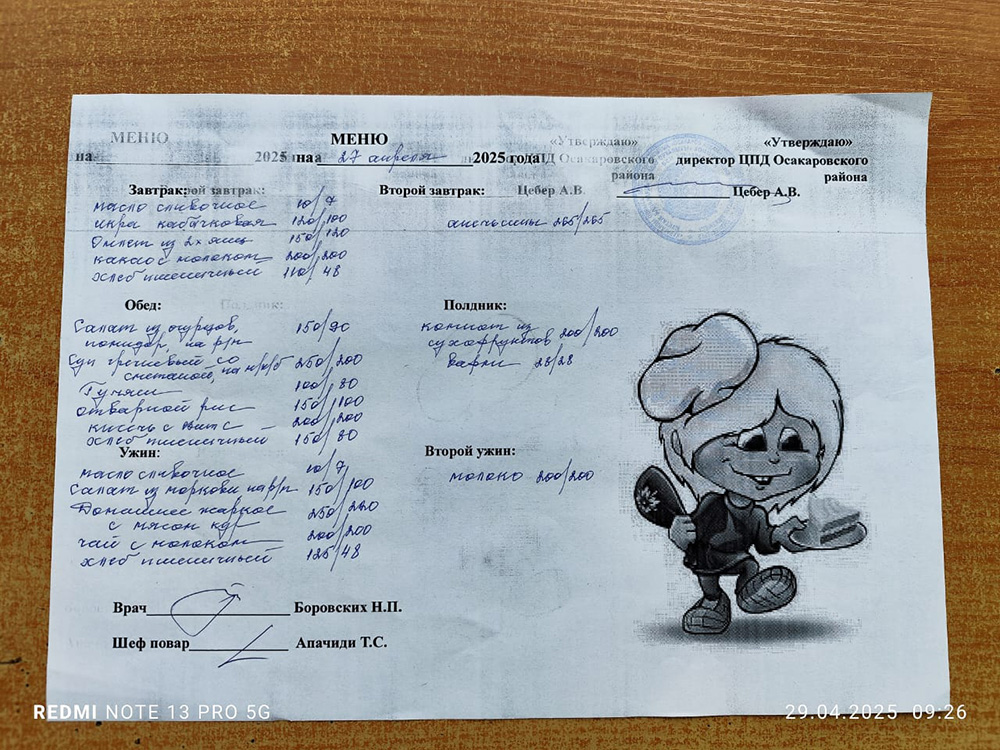 МЕНЮ
МЕНЮ
«Утверждаю»
«Утверждаю»
на 2025 на 27 апреля 2025 года ЦПД Осакаровского директор ЦПД Осакаровского
района
района
Завтрак: рой завтрак: Второй завтрак: Цебер А.В. Цебер А.В.
масло сливочное 10/7
икра кабачковая 120/100 апельсины 265/265
Омлет из 2х яиц 150/120
какао с молоком 200/200
хлеб пшеничный 110/48
Обед: Полдник: Полдник:
Салат из огурцов, 150/90 компот из
помидор, на р/м сухофруктов 200/200
Суп гречневый со 250/200 вафли 28/28
сметаной, на к/б
Гуляш 100/80
отварной рис 150/100
кисель с вит С – 200/200
хлеб пшеничный – 150/80
Ужин: Второй ужин:
масло сливочное 10/7 молоко 200/200
Салат из моркови на р/м 150/100
Домашнее жаркое 250/220
с мясом кур
чай с молоком 200/200
хлеб пшеничный 125/48
Врач Боровских Н.П.
Шеф повар Апачиди Т.С.
REDMI NOTE 13 PRO 5G
29.04.2025 09:26